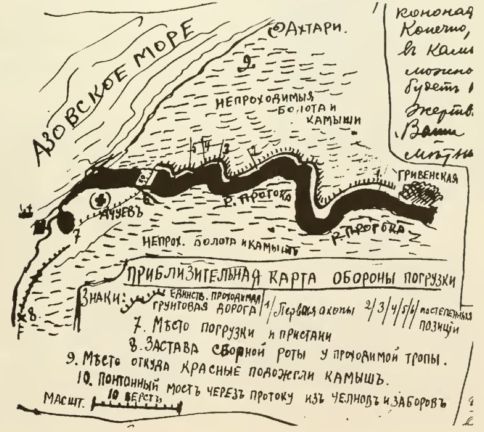 АХТАРИ.
АЗОВСКОЕ МОРЕ
9
НЕПРОХОДИМЫЯ
БОЛОТА И
КАМЫШИ
5 4 3 2 1
ГРИВЕНСКАЯ
10
6
АЧУЕВЪ
Р. ПРОТОКА
Р. ПРОТОКА
7
НЕПРОХ. БОЛОТА И КАМЫШЪ
8.
Конечно,
в Кам
можно
будетъ
Жертв
Ваши
ПРИБЛИЗИТЕЛЬНАЯ КАРТА ОБОРОНЫ ПОГРУЗКИ
ЗНАКИ: ЕДИНСТВ. ПРОХОДИМАЯ
ГРУНТОВАЯ ДОРОГА /1/ Первыя окопы 2/3/4/5/6/ ПОСТЕПЕННЫЯ
ПОЗИЦІИ
7. МѢСТО ПОГРУЗКИ И ПРИСТАНИ
8. ЗАСТАВА СБОРНОЙ РОТЫ У ПРОХОДИМОЙ ТРОПЫ.
9. МѢСТО ОТКУДА КРАСНЫЕ ПОДОЖГЛИ КАМЫШЪ.
10. ПОНТОННЫЙ МОСТЪ ЧЕРЕЗЪ ПРОТОКУ ИЗЪ ЧЕЛНОВЪ И ЗАБОРОВЪ
МАСШТ. 10 ВЕРСТЪ